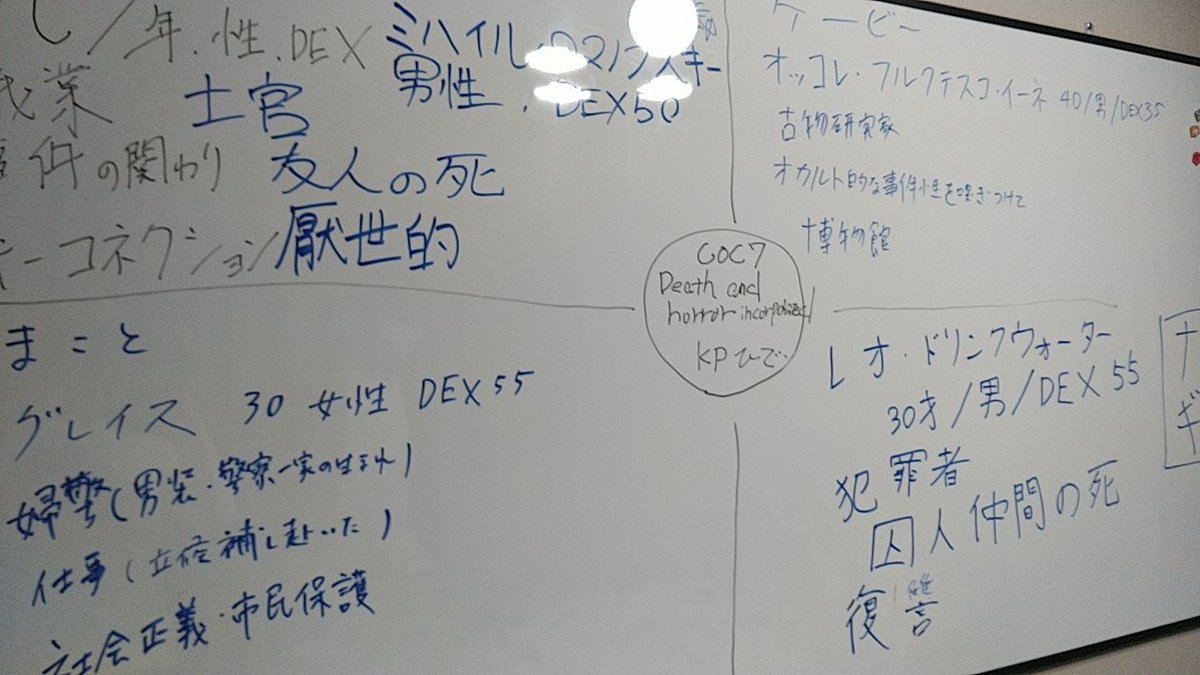 年、性、DEX
ミハイル・ロマノフスキー
男性、DEX50
職業 士官
事件の関わり 友人の死
キーコネクション 厭世的
ケービー
オッコレ・フルクテスコ・イーネ 40/男/DEX35
古物研究家
オカルト的な事件性を嗅ぎつけて
博物館
COC7
Death and
horror incorporated
KP ひで
まこと
グレイス 30 女性 DEX55
婦警(男装・警察一家の生まれ)
仕事(立候補し赴いた)
社会正義・市民保護
レオ・ドリンクウォーター
30才/男/DEX55
犯罪者
囚人仲間の死
復讐
ナ
ギ